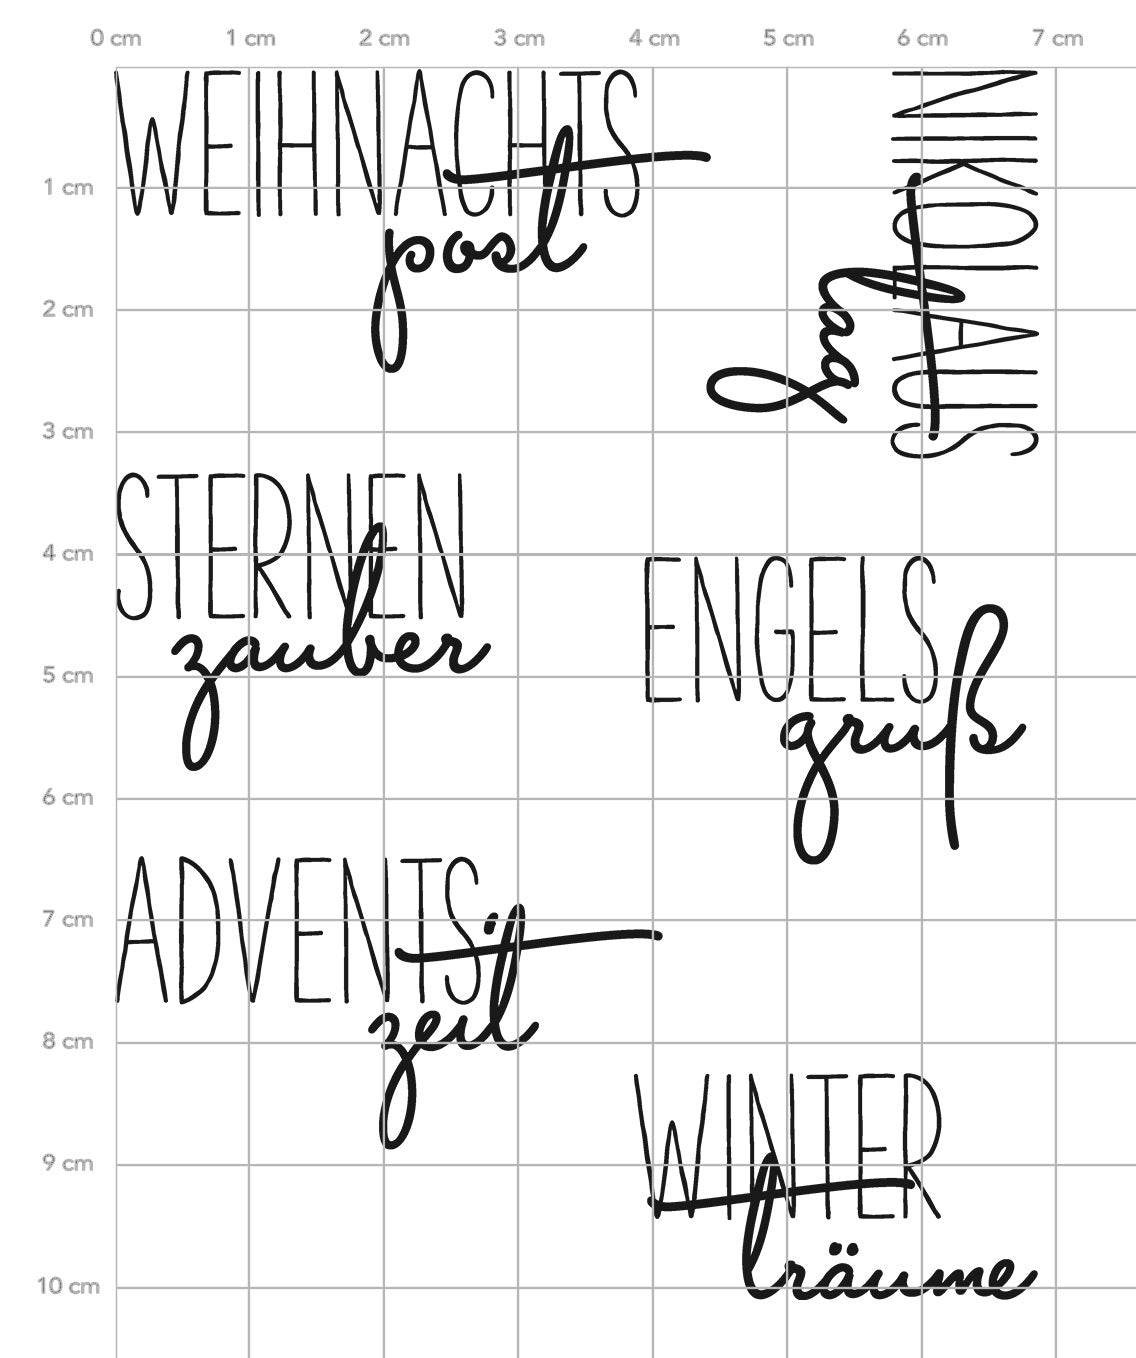 0 cm 1 cm 2 cm 3 cm 4 cm 5 cm 6 cm 7 cm
WEIHNACHTS
post
NIKOLAUS
tag
1 cm
2 cm
3 cm
STERNEN
zauber
4 cm
ENGELS
gruß
5 cm
6 cm
ADVENTS
zeit
7 cm
8 cm
WINTER
träume
9 cm
10 cm